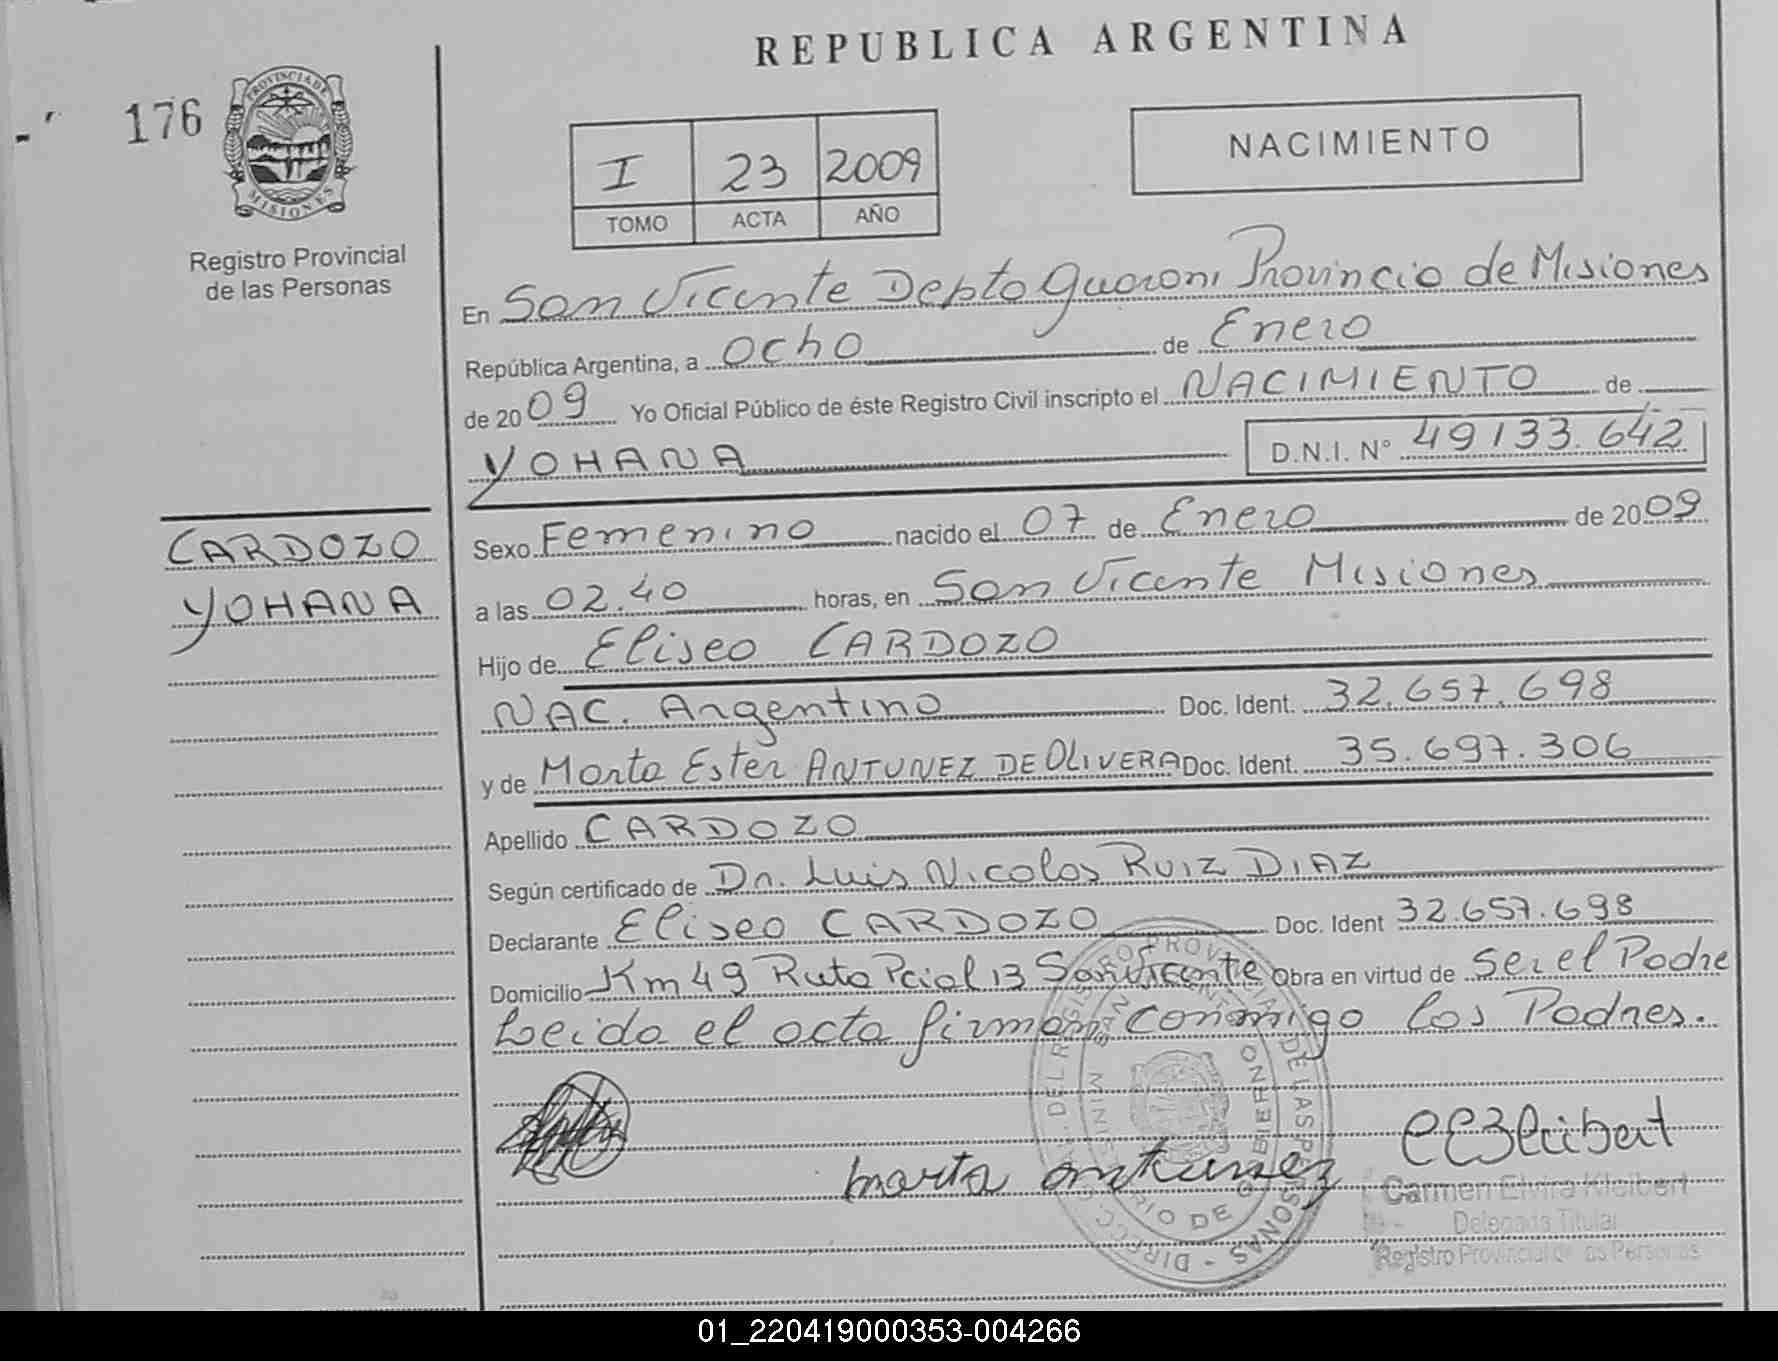 REPUBLICA ARGENTINA
176
PROVINCIA DE
MISIONES
Registro Provincial
de las Personas
I 23 2009
TOMO ACTA AÑO
NACIMIENTO
En San Vicente Depto Guarani Provincia de Misiones
República Argentina, a ocho de Enero
de 2009 Yo Oficial Público de éste Registro Civil inscripto el NACIMIENTO de
YOHANA D.N.I. Nº 49133.642
CARDOZO
YOHANA
Sexo Femenino nacido el 07 de Enero de 2009
a las 02.40 horas, en San Vicente Misiones
Hijo de Eliseo CARDOZO
NAC. Argentino Doc. Ident. 32.657.698
y de Marta Ester ANTUNEZ DE OLIVERA Doc. Ident. 35.697.306
Apellido CARDOZO
Según certificado de Dr. Luis Nicolas RUIZ DIAZ
Declarante Eliseo CARDOZO Doc. Ident 32.657.698
Domicilio Km 49 Ruta Pcial 13 San Vicente Obra en virtud de ser el Padre
Leida el acta firman conmigo los Padres.
marta antunez
Carmen Elvira Kleibert
Delegada Titular
Registro Provincial de las Personas
01_220419000353-004266